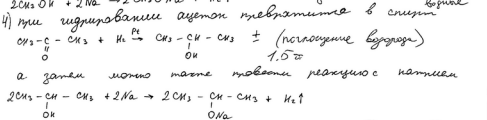 2CH3OH + 2Na →
4) при гидрировании ацетон превратится в спирт
CH3 - C - CH3 + H2 →Pt CH3 - CH - CH3 ± (поглощение водорода)
O OH 1.5п
а затем можно также провести реакцию с натрием
2CH3 - CH - CH3 + 2Na → 2CH3 - CH - CH3 + H2↑
OH ONa